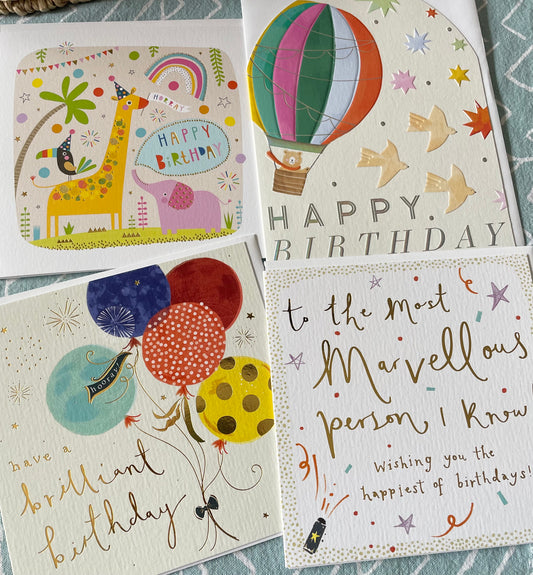 HOORAY
HAPPY
BiRTHDAY
HAPPY
BIRTHDAY
hooray
have a
brilliant
birthday
to the most
Marvellous
person I know
Wishing you the
happiest of birthdays!